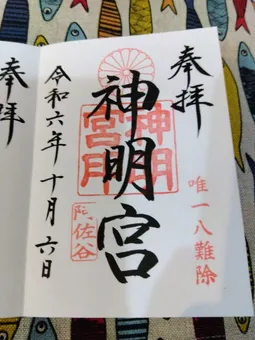 奉拝
唯一八難除
神明宮
神明宮
阿佐谷
令和六年十月六日
奉拝